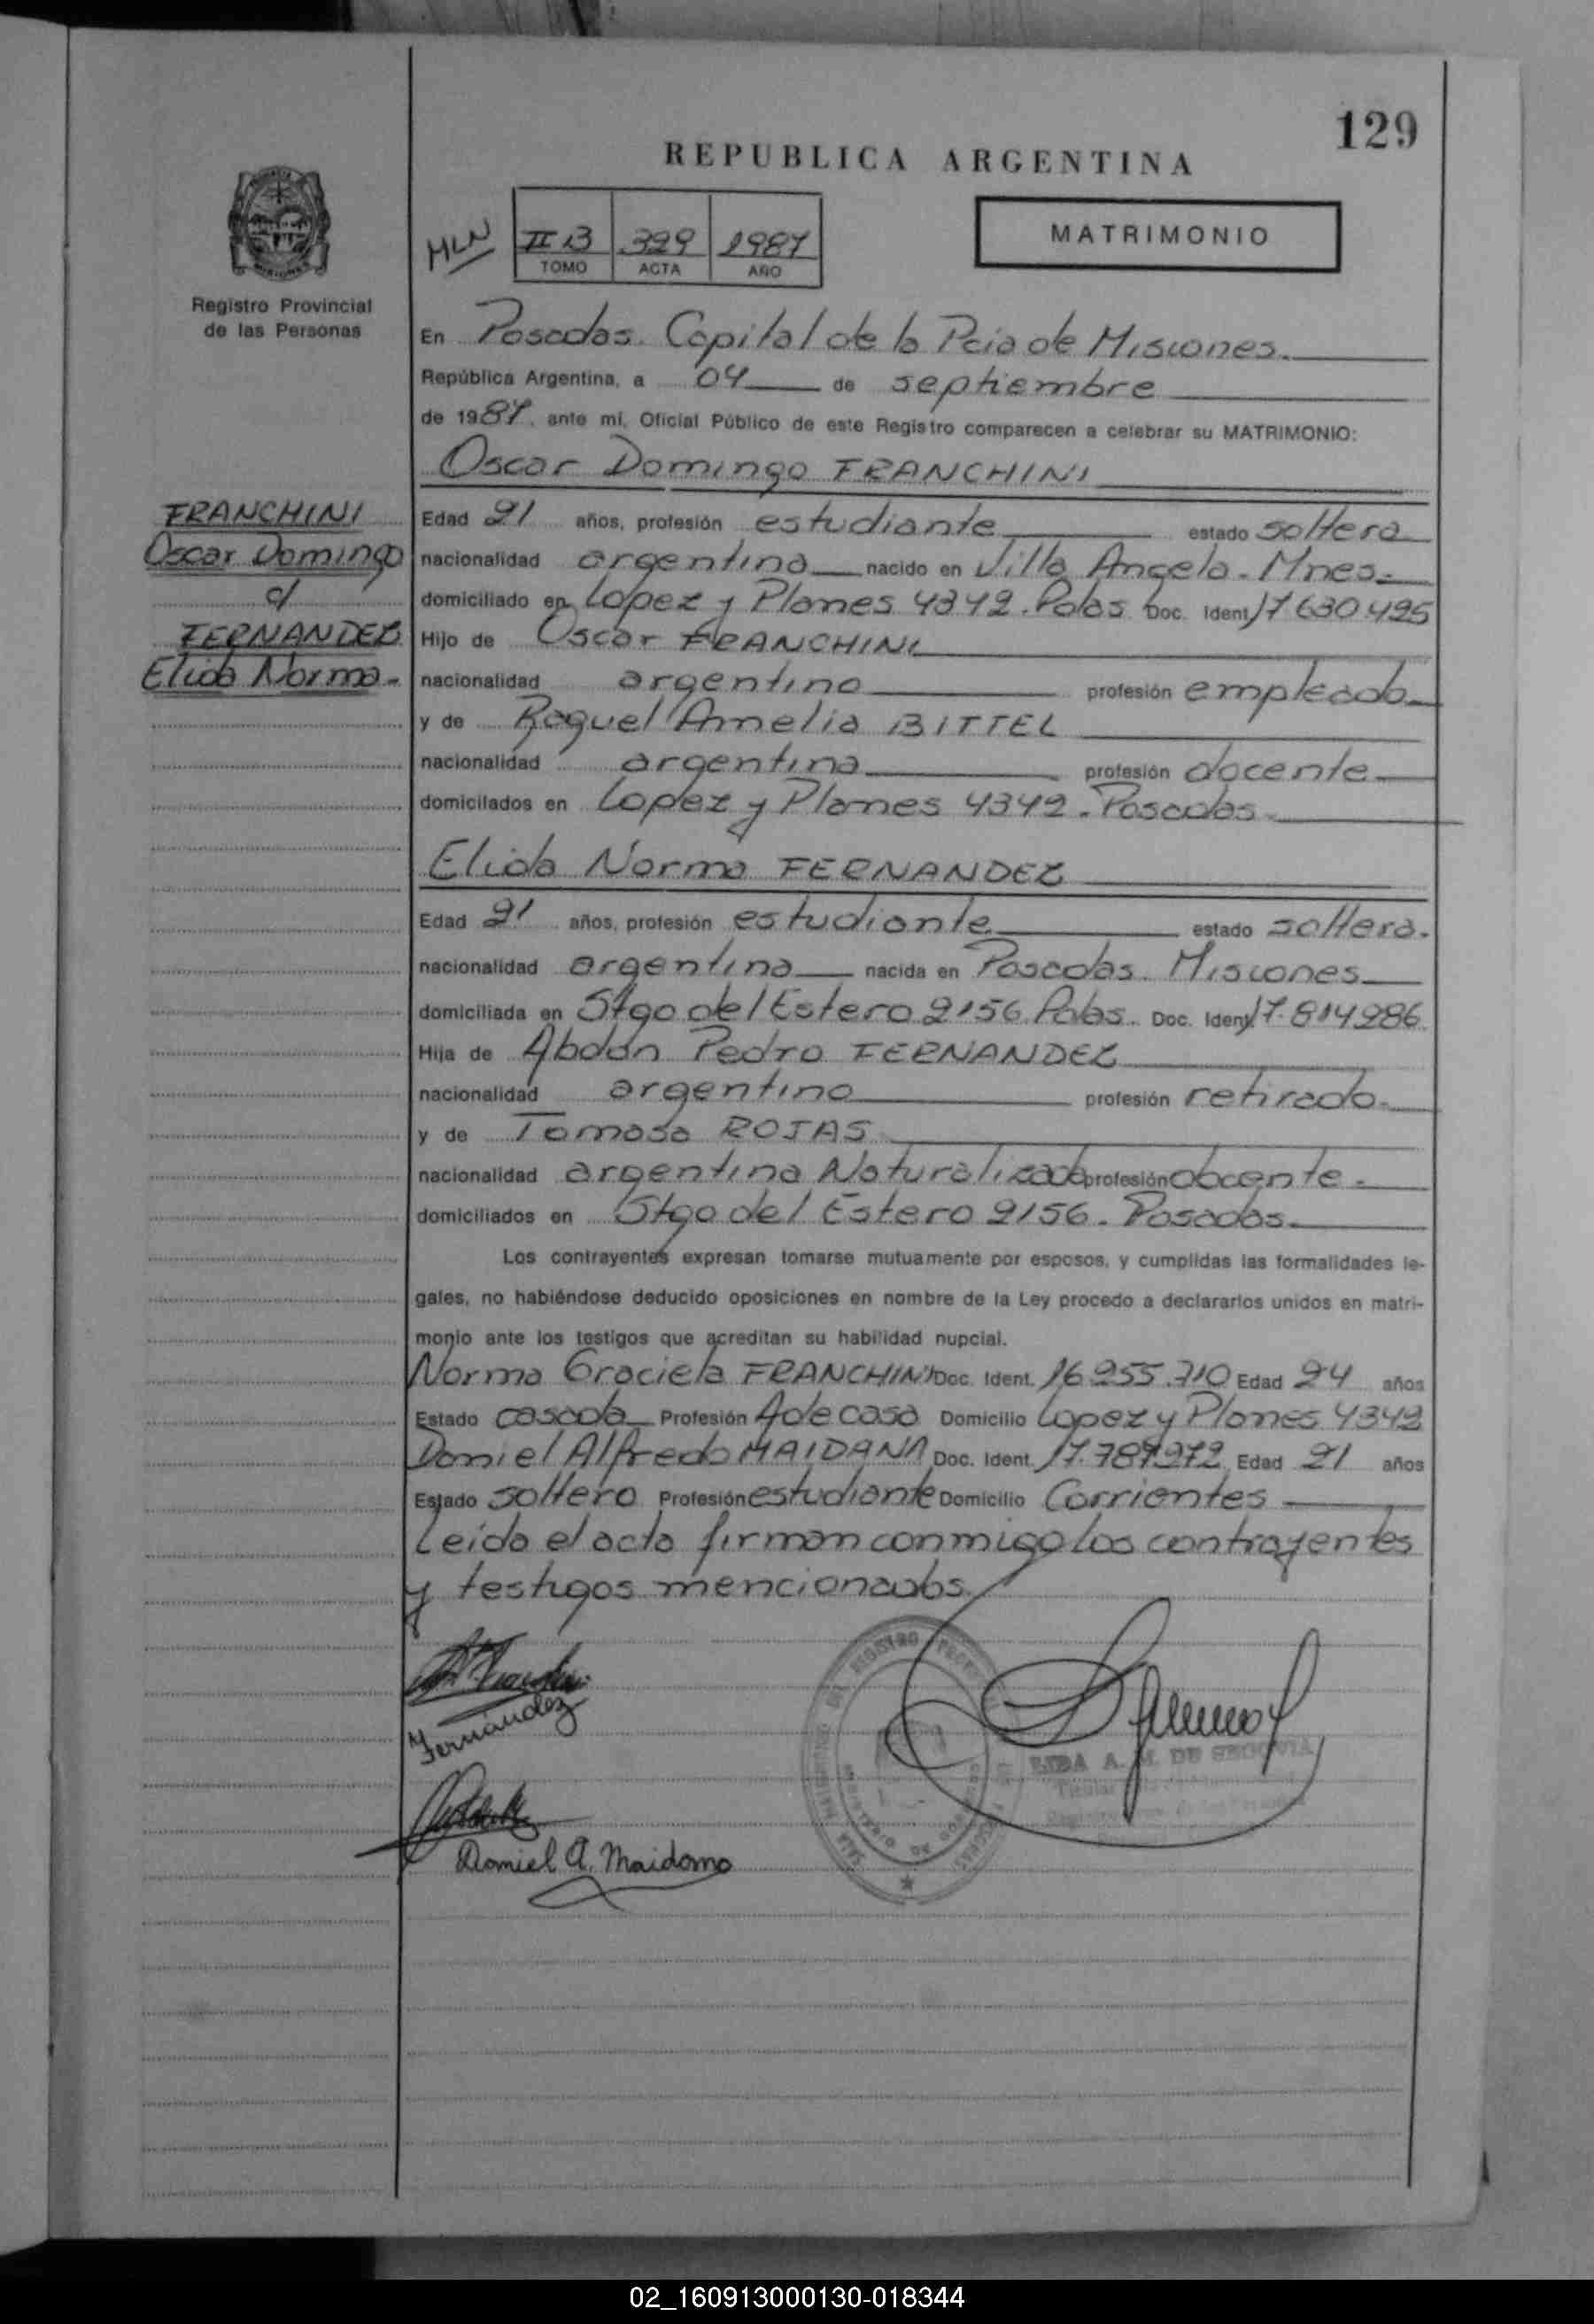 129
REPUBLICA ARGENTINA
MATRIMONIO
HLN
II B 399 1987
TOMO ACTA AÑO
Registro Provincial
de las Personas
En Posadas. Capital de la Pcia de Misiones.
República Argentina, a 04 de septiembre
de 1987, ante mí, Oficial Público de este Registro comparecen a celebrar su MATRIMONIO:
Oscar Domingo FRANCHINI
FRANCHINI
Oscar Domingo
c/
FERNANDEZ
Elida Norma.-
Edad 21 años, profesión estudiante estado soltero
nacionalidad argentino nacido en Villa Angela - Mnes.
domiciliado en Lopez y Planes 4342. Pdas Doc. Ident. 17630.425
Hijo de Oscar FRANCHINI
nacionalidad argentino profesión empleado
y de Raquel Amelia BITTEL
nacionalidad argentina profesión docente
domicilados en Lopez y Planes 4342. Posadas.
Elida Norma FERNANDEZ
Edad 21 años, profesión estudiante estado soltera.
nacionalidad argentina nacida en Posadas. Misiones
domiciliada en Stgo del Estero 2156 Pdas. Doc. Ident. 17.814286
Hija de Abdón Pedro FERNANDEZ
nacionalidad argentino profesión retirado.
y de Tomasa ROJAS
nacionalidad argentina Naturalizada profesión docente.
domiciliados en Stgo del Estero 2156. Posadas.
Los contrayentes expresan tomarse mutuamente por esposos, y cumplidas las formalidades le-
gales, no habiéndose deducido oposiciones en nombre de la Ley procedo a declararlos unidos en matri-
monio ante los testigos que acreditan su habilidad nupcial.
Norma Graciela FRANCHINI Doc. Ident. 16.255.710 Edad 24 años
Estado casada Profesión A de casa Domicilio Lopez y Planes 4342
Daniel Alfredo MAIDANA Doc. Ident. 17.787272 Edad 21 años
Estado soltero Profesión estudiante Domicilio Corrientes
Leída el acta firman conmigo los contrayentes
y testigos mencionados.
Fernández
Daniel A. Maidana
LIDA A. M. DE SEGOVIA
Titular
02_160913000130-018344